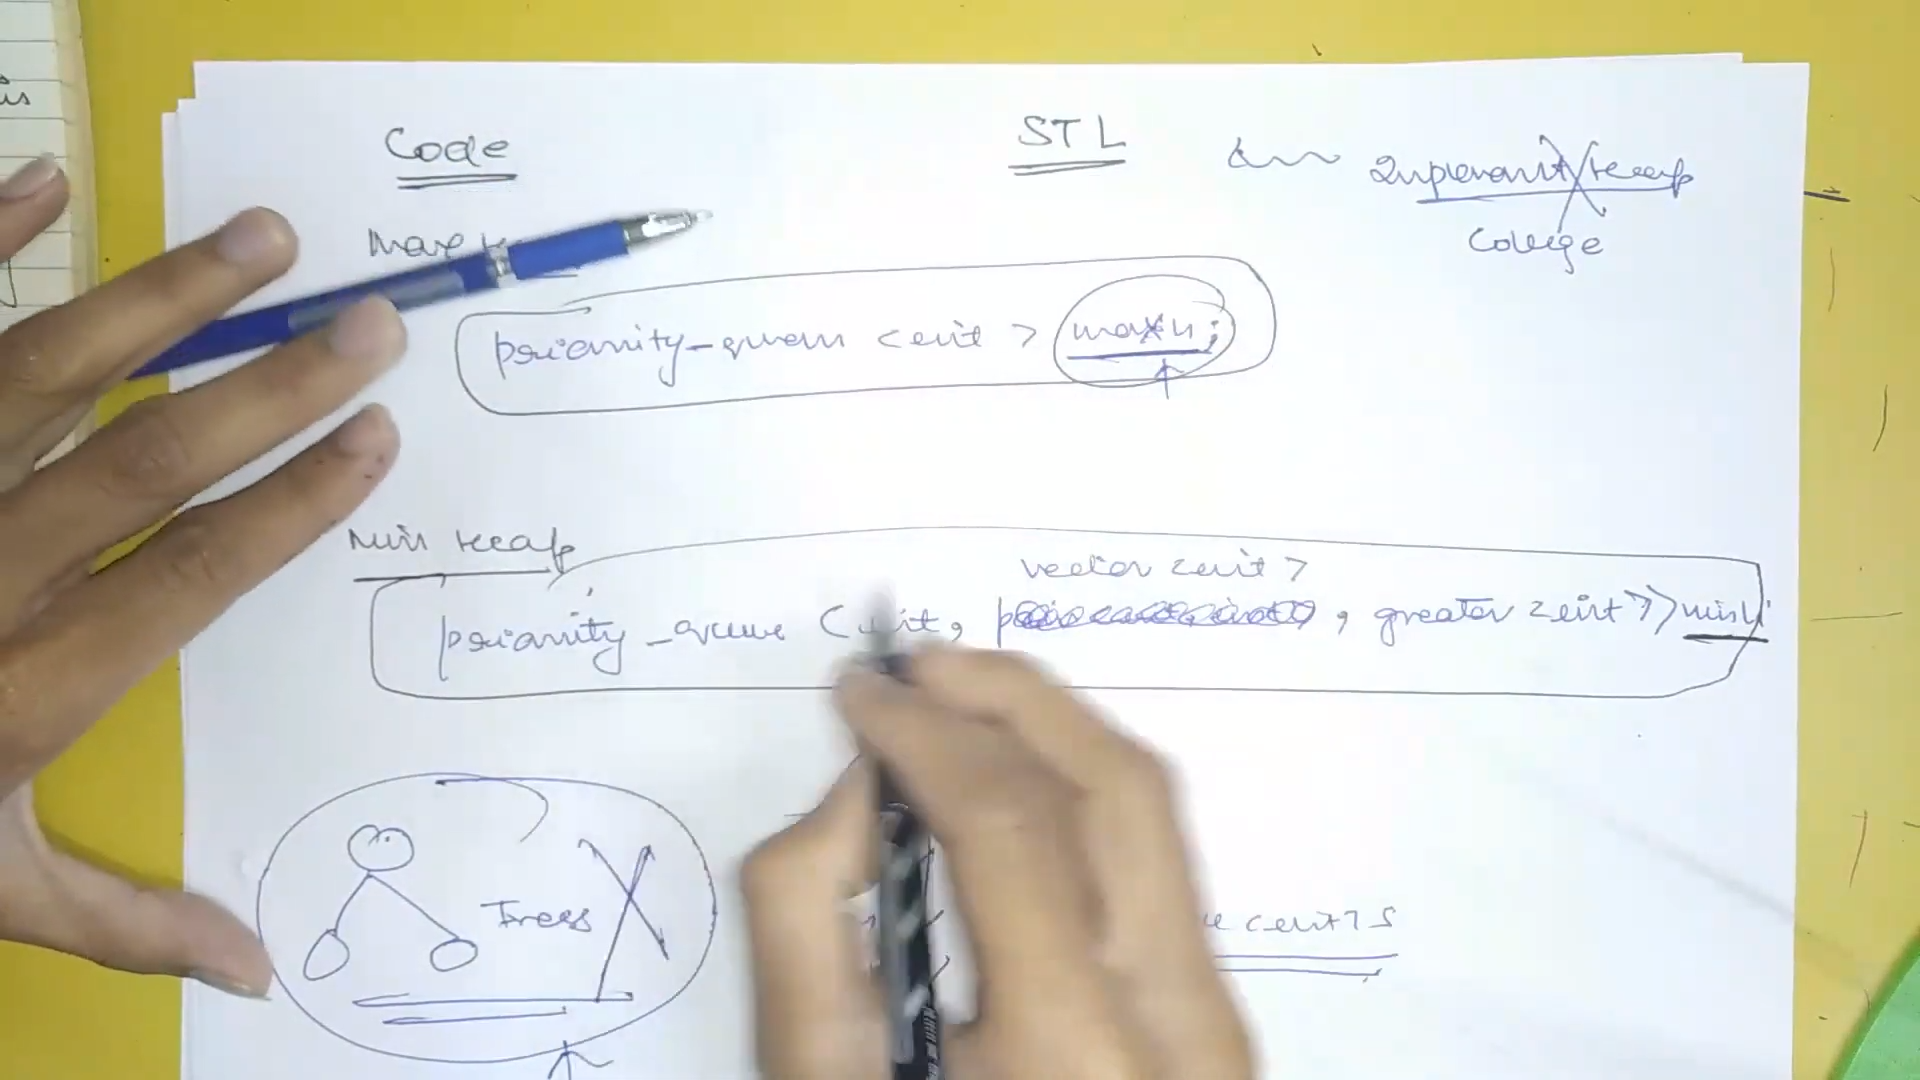 Code
STL
Implement heap
College
Max
priority_queue <int> maxh;
Min heap
vector <int>
priority_queue <int, , greater <int>> minh;
Trees
<int> s
is